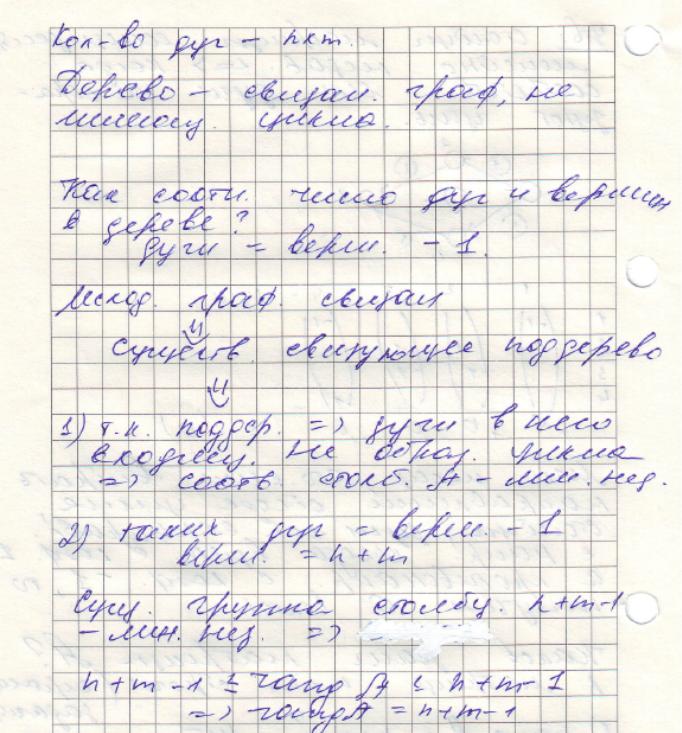 Кол-во дуг – n×m.
Дерево – связан. граф, не
имеющ. цикла.
Как соотн. число дуг и вершин
в дереве?
дуги = верш. – 1.
Исход. граф. связан
⇓
Существ. связующее поддерево
⇓
1) т.к. поддер. => дуги в него
входящ. не образ. цикла
=> соотв. столб. A – лин. нез.
2) таких дуг = верш. – 1
верш. = n+m
Сущ. группа столбц. n+m-1
– лин. нез. =>
n+m-1 ≤ rang A ≤ n+m-1
=> rang A = n+m-1